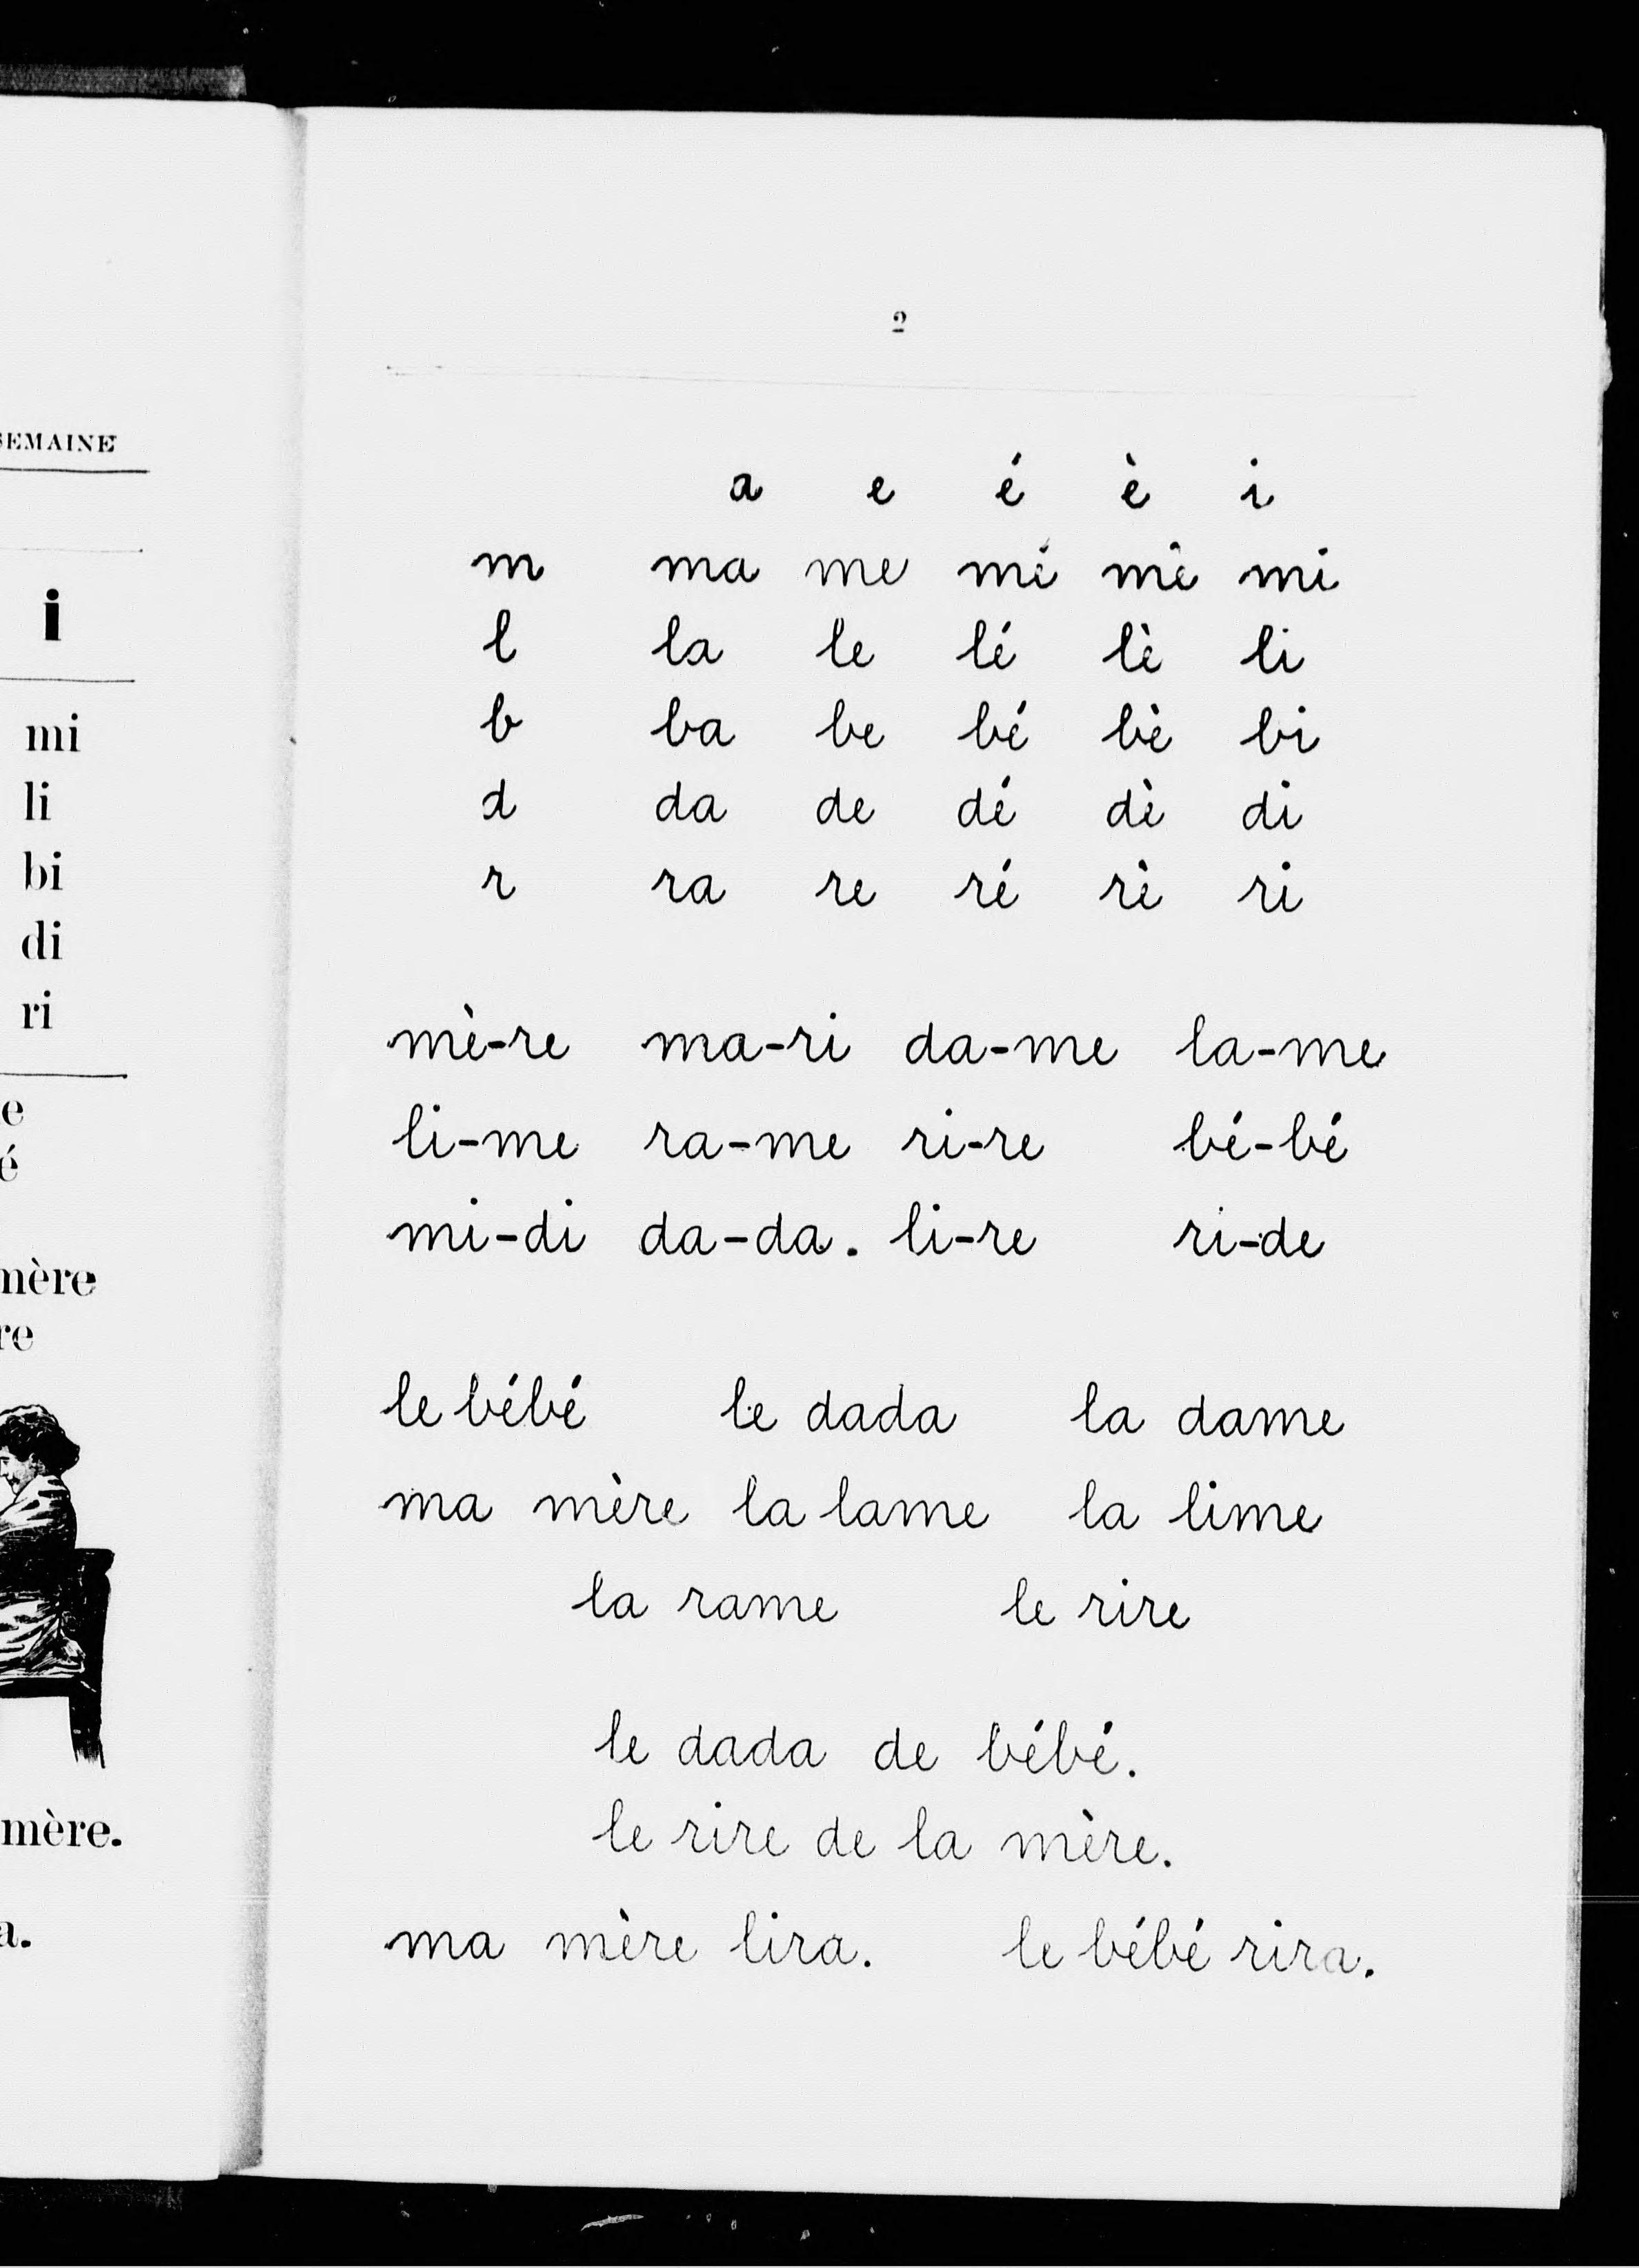 SEMAINE
i
mi
li
bi
di
ri
e
é
mère
re
mère.
a.
2
a e é è i
m ma me mé mè mi
l la le lé lè li
b ba be bé bè bi
d da de dé dè di
r ra re ré rè ri
mè-re ma-ri da-me la-me
li-me ra-me ri-re bé-bé
mi-di da-da. li-re ri-de
le bébé le dada la dame
ma mère la lame la lime
la rame le rire
le dada de bébé.
le rire de la mère.
ma mère lira. le bébé rira.